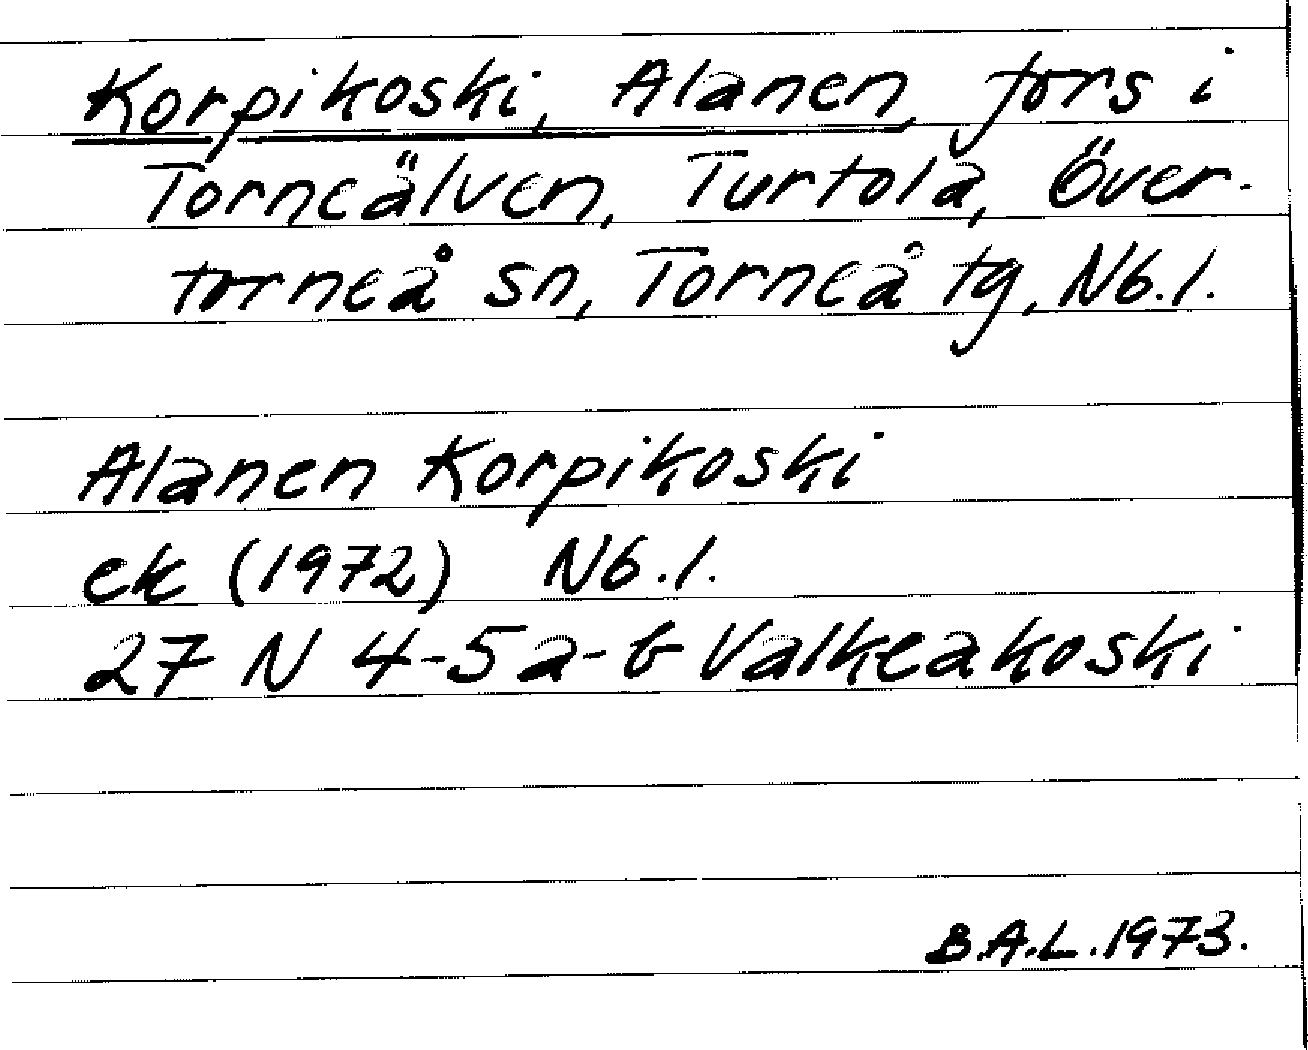 Korpikoski, Alanen, fors i
Torneälven, Turtola, Över-
torneå sn, Torneå tg, Nb.l.
Alanen Korpikoski
ek (1972) Nb.l.
27 N 4-5a-b Valkeakoski
B.A.L.1973.